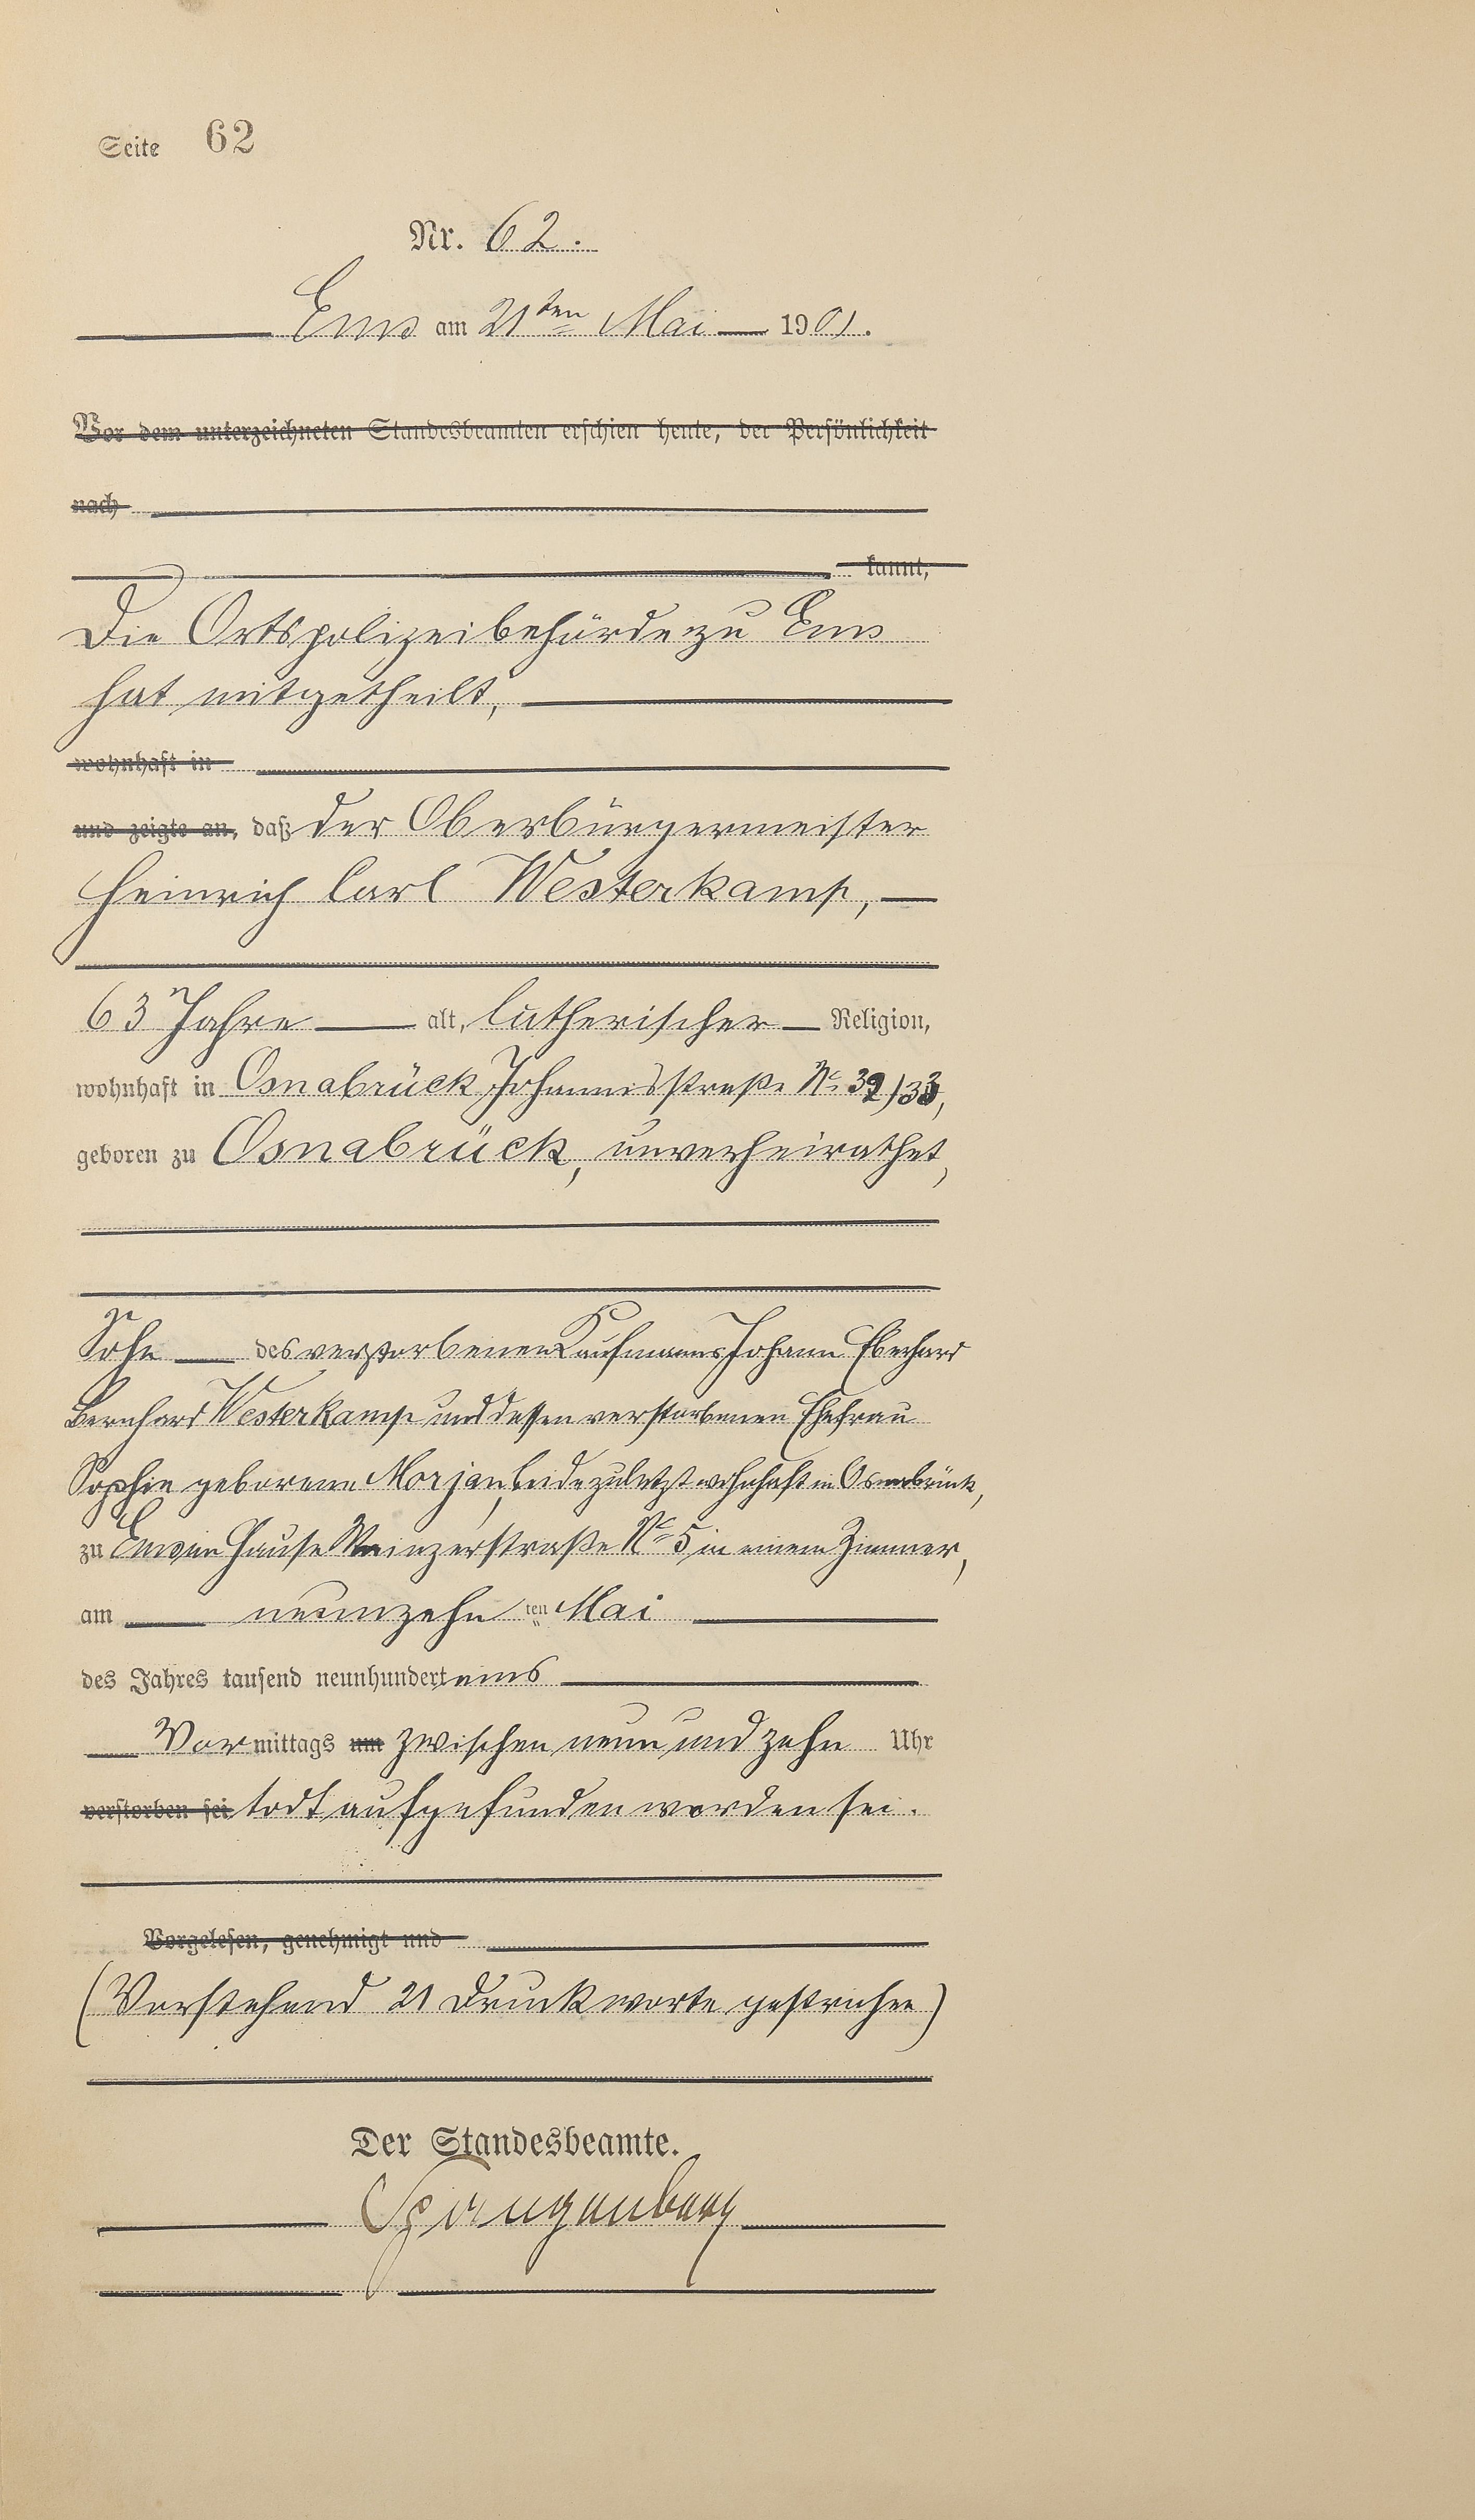 Seite 62
Nr. 62.
Ems am 21ten Mai 1901.
Vor dem unterzeichneten Standesbeamten erschien heute, der Persönlichkeit
nach
kannt,
Die Ortspolizeibehörde zu Ems
hat mitgetheilt,
wohnhaft in
und zeigte an, daß der Oberbürgermeister
Heinrich Carl Westerkamp,
63 Jahre alt, lutherischer Religion,
wohnhaft in Osnabrück Johannisstraße No 32/33,
geboren zu Osnabrück, unverheirathet,
Sohn des verstorbenen Kaufmanns Johann Eberhard
Bernhard Westerkamp und dessen verstorbenen Ehefrau
Sophie geborene Morjan, beide zuletzt wohnhaft in Osnabrück,
zu Ems im Hause Mainzerstraße No 5 in einem Zimmer,
am neunzehn ten Mai
des Jahres tausend neunhundert eins
Vormittags um zwischen neun und zehn Uhr
verstorben sei todt aufgefunden worden sei.
Vorgelesen, genehmigt und
(Vorstehend 21 Druckworte gestrichen)
Der Standesbeamte.
Spangenberg